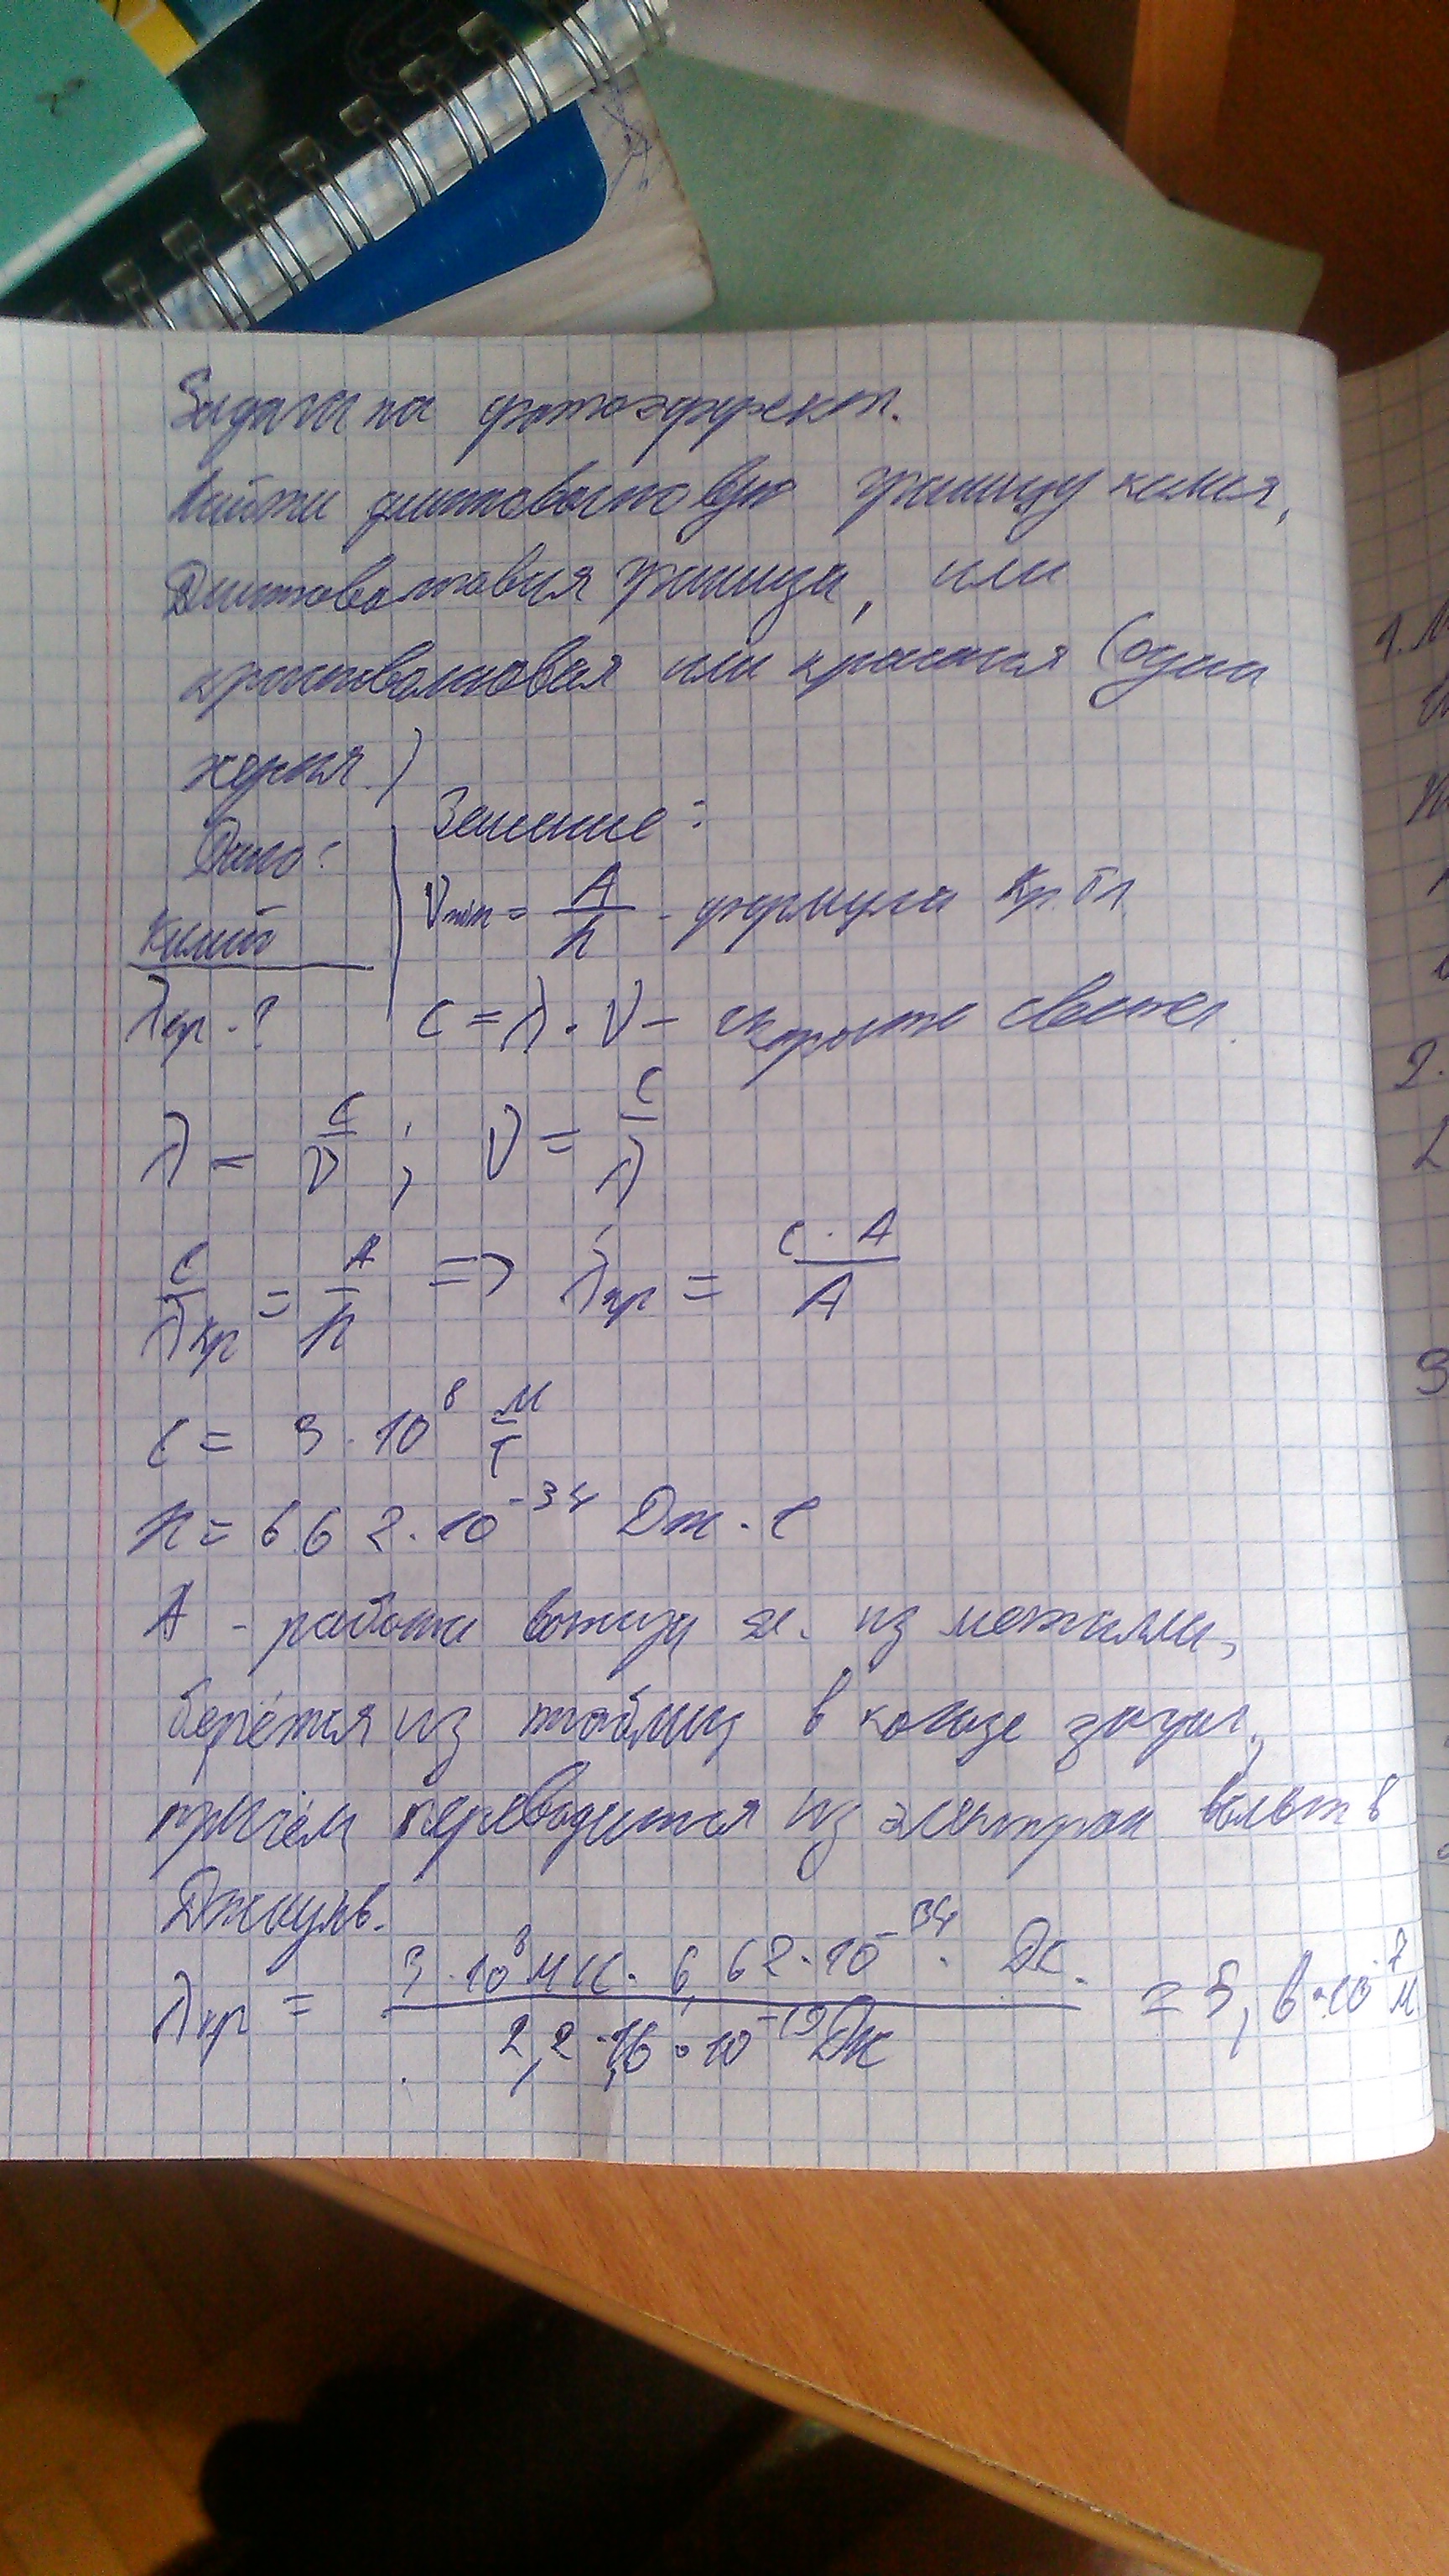 Задача на фотоэффект.
Найти длинноволновую границу калия,
Длинноволновая граница, или
или красная (одна
херня.)
Дано: Решение:
Калий νmin = A/h - формула кр. гл.
λкр - ? c = λ · ν - скорость света.
λ = c/ν ; ν = c/λ
c/λкр = A/h => λкр = c · h/A
c = 3 · 10⁸ м/с
h = 6,62 · 10⁻³⁴ Дж · с
A - работа выхода эл. из металла,
берётся из таблиц в конце задач.,
причём переводится из электрон вольт в
Джоуль.
λкр = 3 · 10⁸ м/с · 6,62 · 10⁻³⁴ · Дс. / 2,2 · 1,6 · 10⁻¹⁹ Дж = 5,6 · 10⁻⁷ м